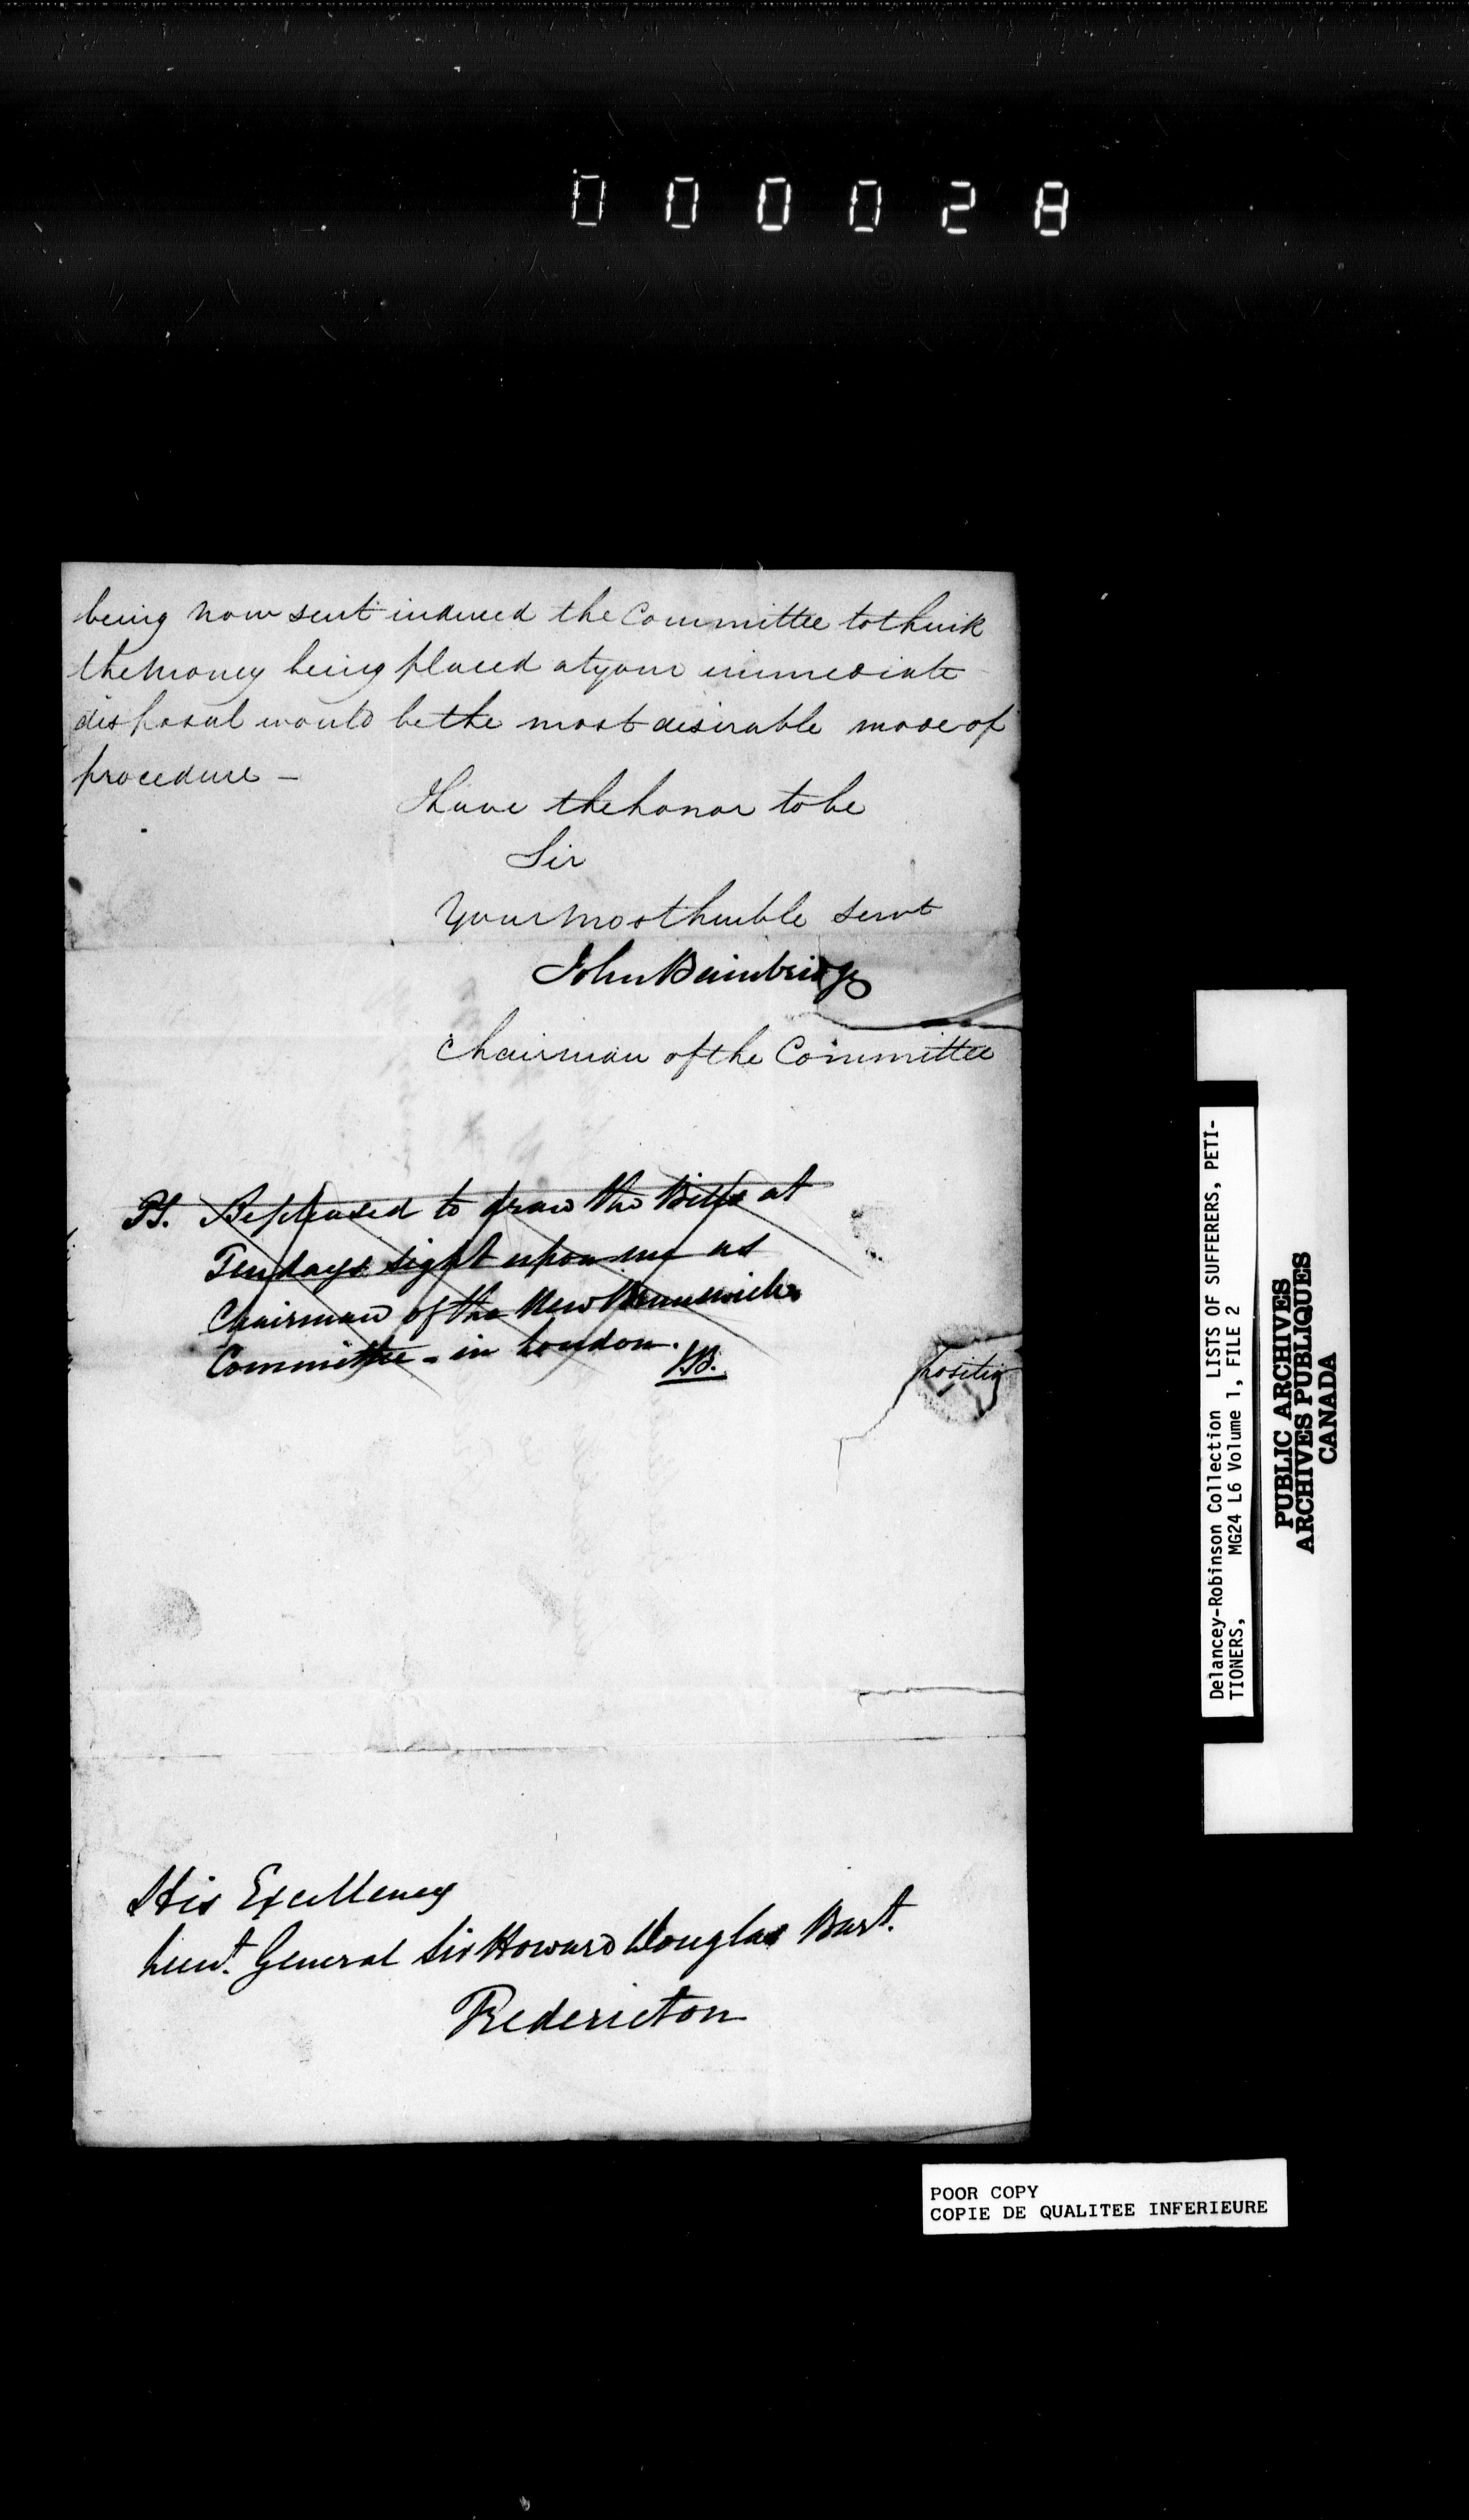 000028
being now sent induced the Committee to think
the money being placed at your immediate
disposal would be the most desirable mode of
procedure —
I have the honor to be
Sir
Your most humble Servt
John Bainbridge
Chairman of the Committee
PS. Be pleased to draw the Bills at
Ten days sight upon me as
Chairman of the New Brunswick
Committee - in London.
J.B.
His Excellency
Lieut. General Sir Howard Douglas Bart.
Fredericton
Delancey-Robinson Collection LISTS OF SUFFERERS, PETI-
TIONERS, MG24 L6 Volume 1, FILE 2
PUBLIC ARCHIVES
ARCHIVES PUBLIQUES
CANADA
POOR COPY
COPIE DE QUALITEE INFERIEURE